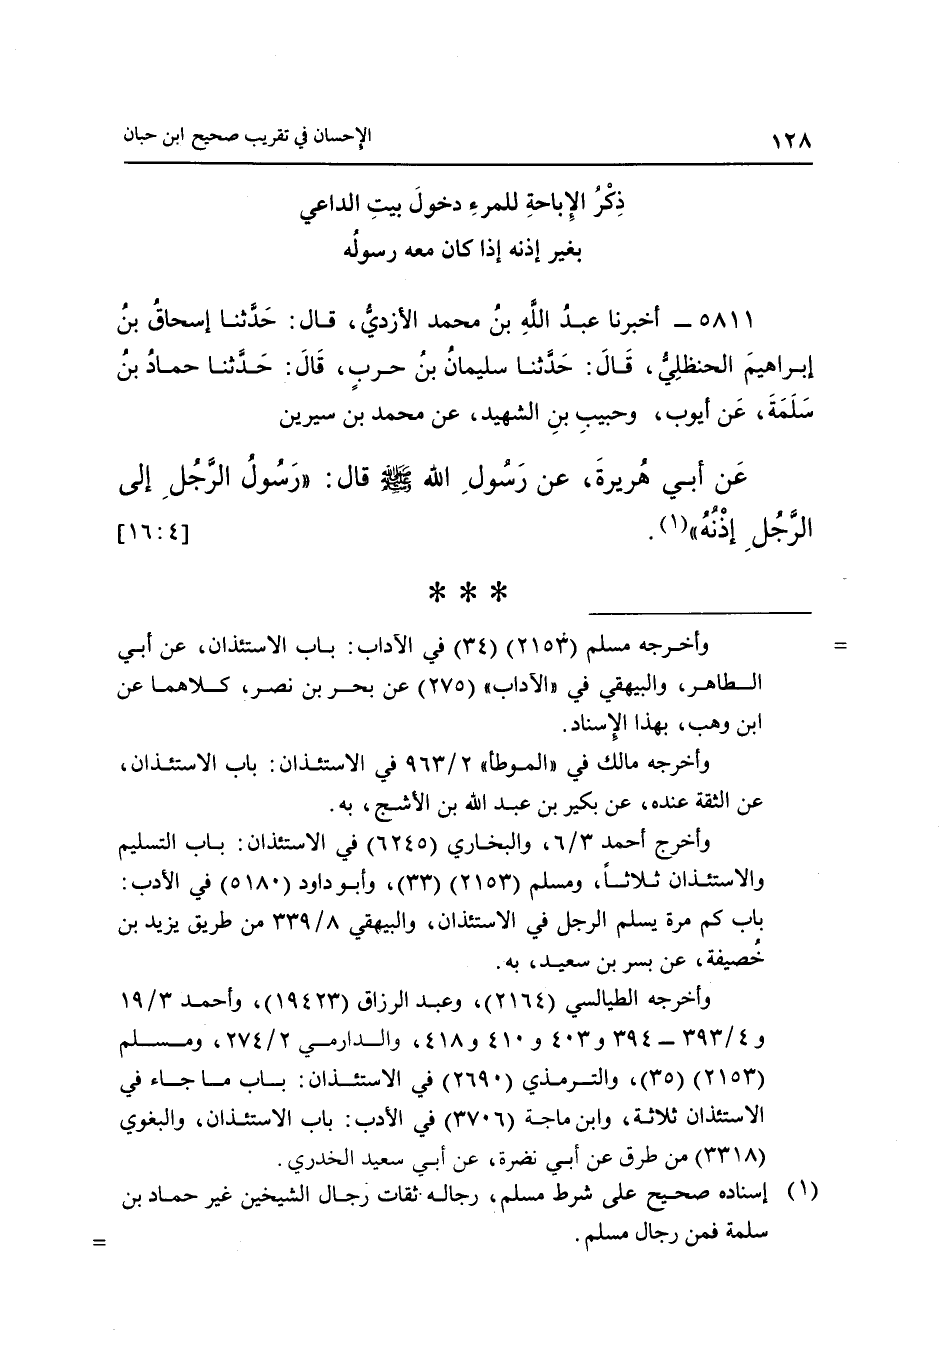 ١٢٨ الإحسان في تقريب صحيح ابن حبان
ذِكْرُ الإِباحةِ للمرءِ دخولَ بيتِ الداعي
بغير إذنه إذا كان معه رسولُه
٥٨١١ ـ أخبرنا عبدُ اللَّهِ بنُ محمد الأزديُّ، قال: حَدَّثنا إسحاقُ بنُ
إبراهيمَ الحنظليُّ، قَالَ: حَدَّثنا سليمانُ بنُ حربٍ، قَالَ: حَدَّثنا حمادُ بنُ
سَلَمَةَ، عَن أيوب، وحبيبِ بنِ الشهيد، عن محمد بن سيرين
عَن أبي هُريرةَ، عن رَسُولِ الله ﷺ قال: «رَسُولُ الرَّجُلِ إلى
الرَّجُلِ إِذْنُهُ»(١). [٤ : ١٦]
* * *
= وأخرجه مسلم (٢١٥٣) (٣٤) في الآداب: باب الاستئذان، عن أبي
الطاهر، والبيهقي في «الآداب» (٢٧٥) عن بحر بن نصر، كلاهما عن
ابن وهب، بهذا الإِسناد.
وأخرجه مالك في «الموطأ» ٩٦٣/٢ في الاستئذان: باب الاستئذان،
عن الثقة عنده، عن بكير بن عبد الله بن الأشج، به.
وأخرج أحمد ٦/٣، والبخاري (٦٢٤٥) في الاستئذان: باب التسليم
والاستئذان ثلاثاً، ومسلم (٢١٥٣) (٣٣)، وأبو داود (٥١٨٠) في الأدب:
باب كم مرة يسلم الرجل في الاستئذان، والبيهقي ٣٣٩/٨ من طريق يزيد بن
خُصيفة، عن بسر بن سعيد، به.
وأخرجه الطيالسي (٢١٦٤)، وعبد الرزاق (١٩٤٢٣)، وأحمد ١٩/٣
و ٣٩٣/٤ ـ ٣٩٤ و ٤٠٣ و ٤١٠ و ٤١٨، والدارمي ٢٧٤/٢، ومسلم
(٢١٥٣) (٣٥)، والترمذي (٢٦٩٠) في الاستئذان: باب ما جاء في
الاستئذان ثلاثة، وابن ماجة (٣٧٠٦) في الأدب: باب الاستئذان، والبغوي
(٣٣١٨) من طرق عن أبي نضرة، عن أبي سعيد الخدري.
(١) إسناده صحيح على شرط مسلم، رجاله ثقات رجال الشيخين غير حماد بن
سلمة فمن رجال مسلم. =